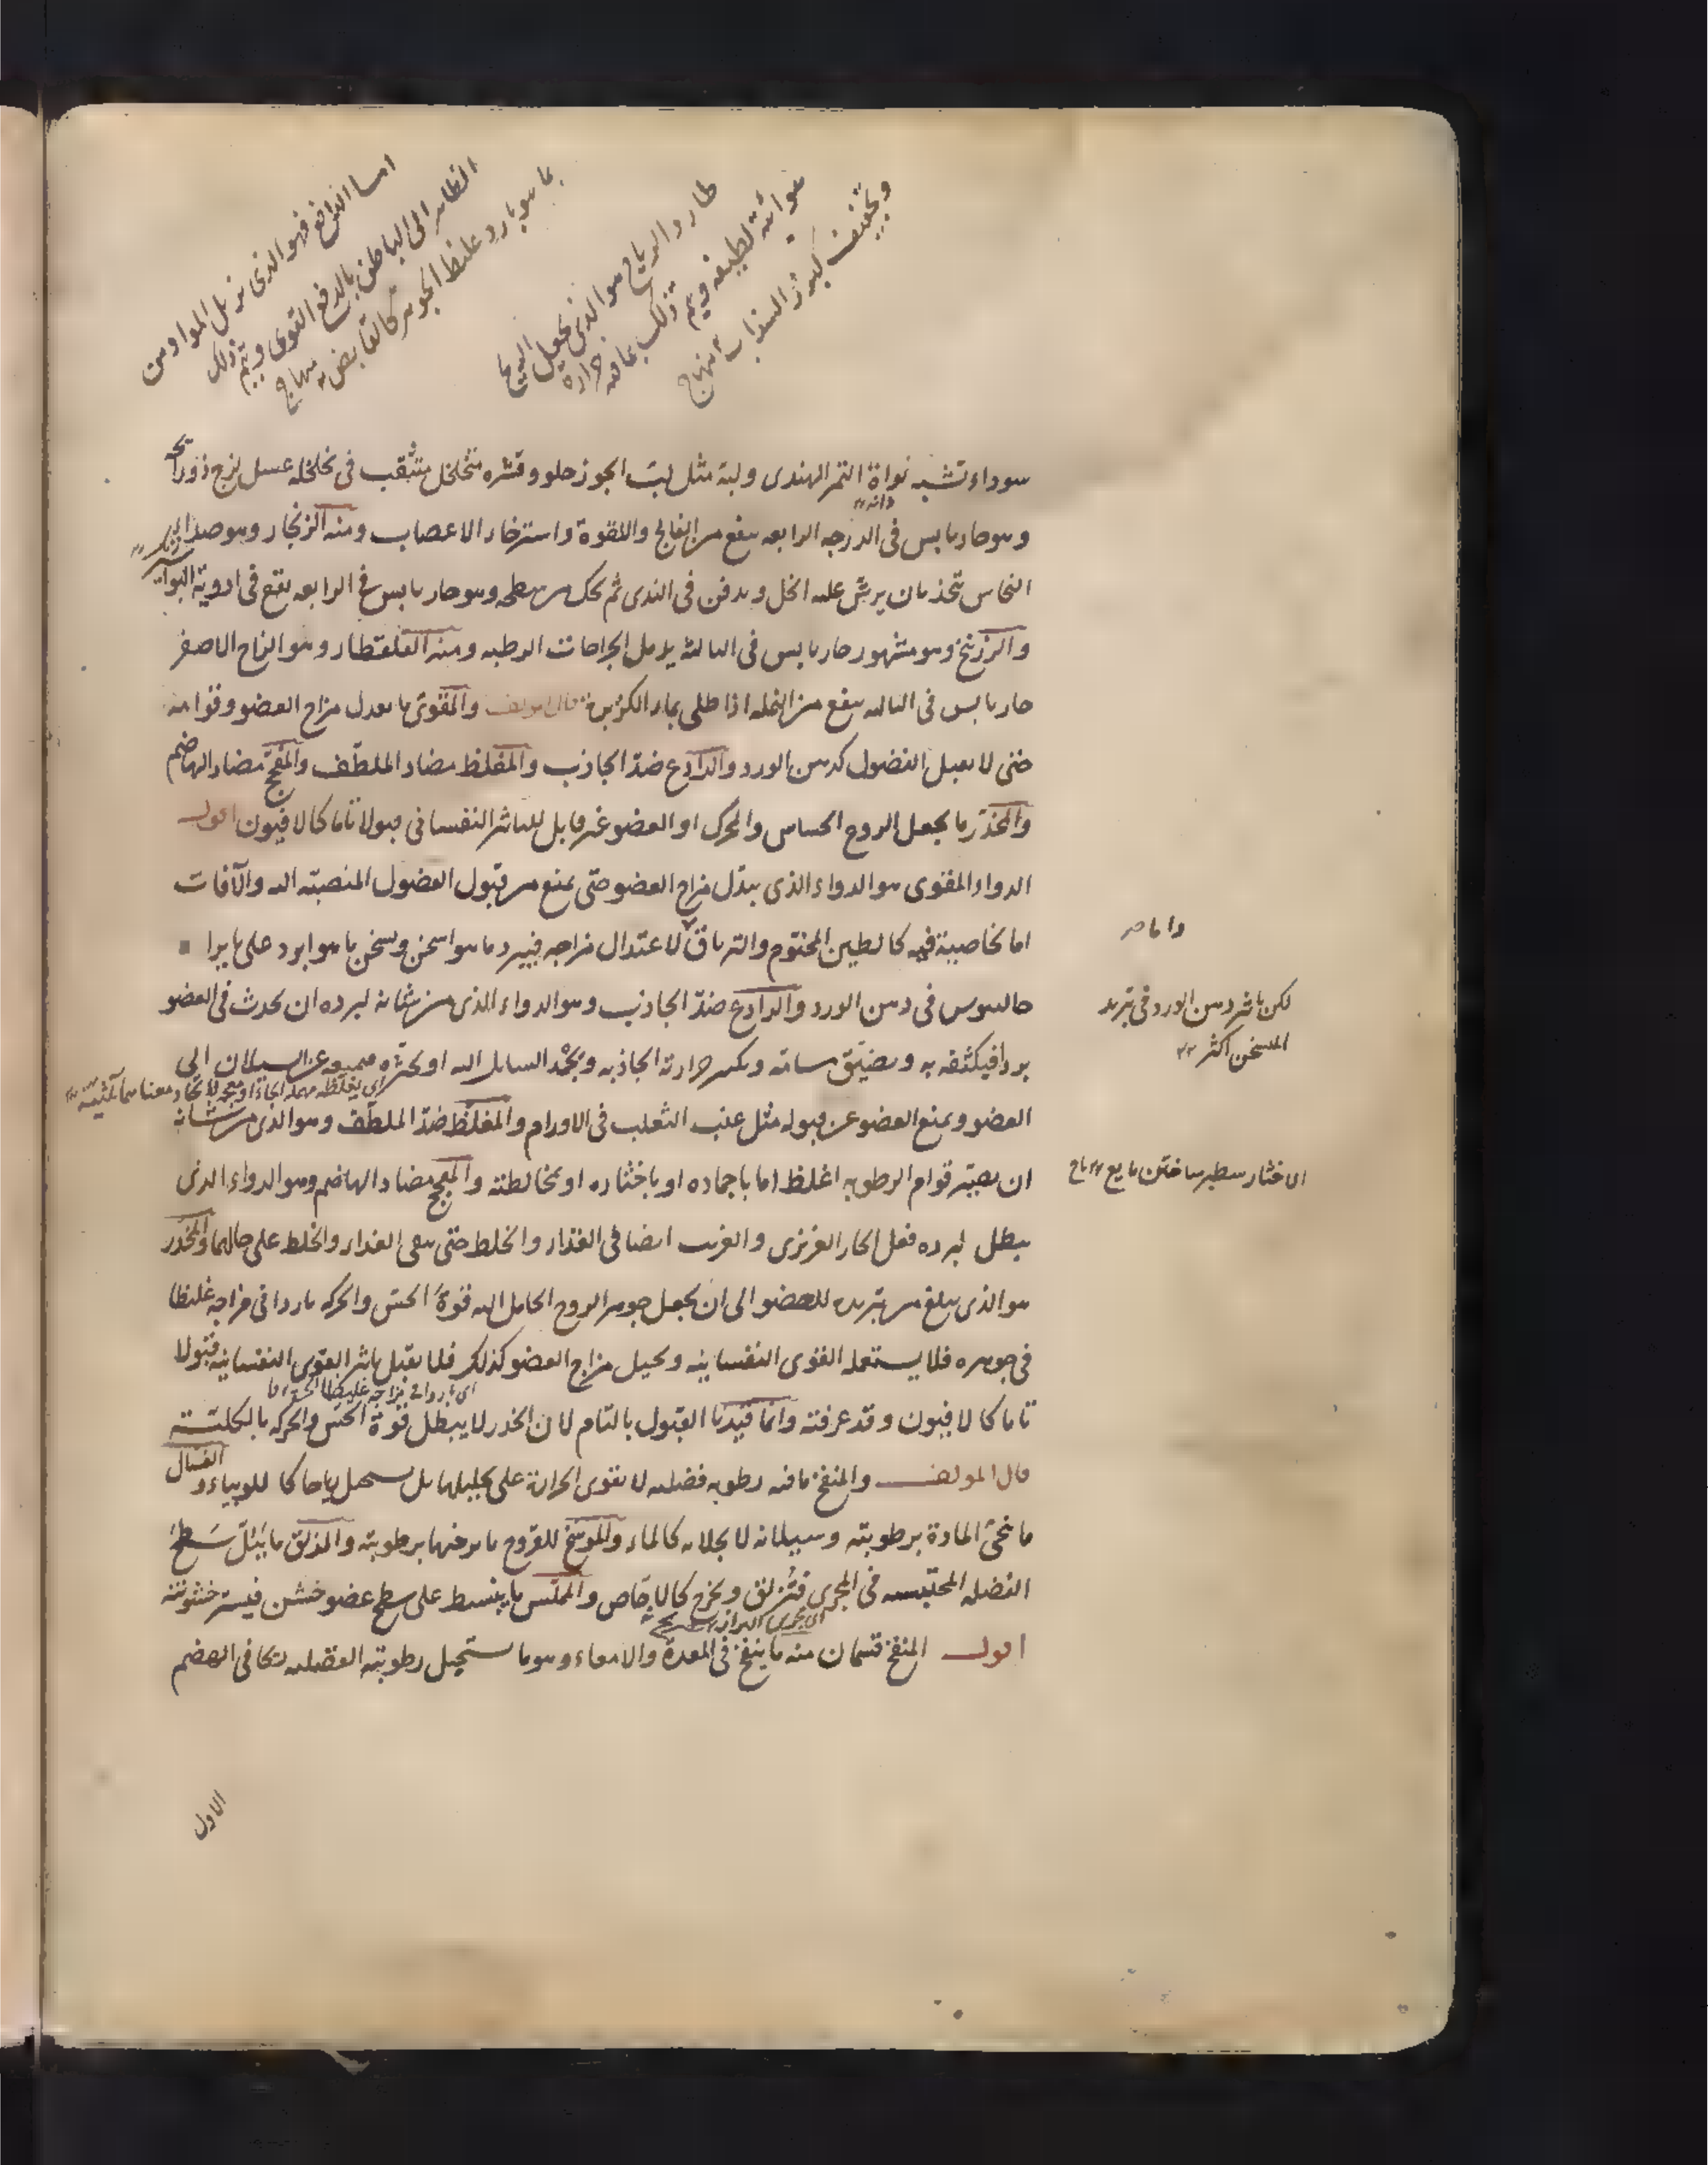 اما الدافع فهو الذى يزيل المواد من
الظاهر الى الباطن بالدفع القوى ويتم ذلك
بما هو بارد غليظ الجوهر كالقابض منهاج
طارد الرياح هو الذى يجعل الريح
هوائية لطيفة ويتم ذلك بما فيه حرارة
وتجفيف كبزر السذاب منهاج
سوداء تشبه نواة التمر الهندى ولبه مثل لب الجوز حلو وقشره متخلخل متثقب فى تخلخله عسل لزج ذو رائحة
دانه
وهو حار يابس فى الدرجه الرابعه ينفع من الفالج واللقوة واسترخاء الاعصاب ومنه الزنجار وهو صداء
النحاس تتخذ بان يرش عليه الخل ويدفن فى الندى ثم يحك من سطحه وهو حار يابس فى الرابعه يقع فى ادوية البواسير
والزرنيخ وهو مشهور حار يابس فى الثالثة يدمل الجراحات الرطبه ومنه القلقطار وهو الزاج الاصفر
حار يابس فى الثالثه ينفع من النمله اذا طلى بماء الكزبرة قال المولف والمقوى ما يعدل مزاج العضو وقوامه
حتى لا يقبل الفضول كدهن الورد والرادع ضد الجاذب والمغلظ مضاد الملطف والمفجج مضاد الهاضم
والمخدر ما يجعل الروح الحساس والمحرك او العضو غير قابل للتاثير النفسانى قبولا تاما كالافيون اقول
الدواء المقوى هو الدواء الذى يبدل مزاج العضو حتى يمنع من قبول الفضول المنصبة اليه والآفات
اما لخاصية فيه كالطين المختوم والترياق لاعتدال مزاجه فيبرد ما هو اسخن ويسخن ما هو ابرد على ما يرا
واما
جالينوس فى دهن الورد والرادع ضد الجاذب وهو الدواء الذى من شانه لبرده ان يحدث فى العضو
لكن تاثير دهن الورد فى تبريد
المسخن اكثر
بردا فيكثفه به ويضيق مسامه ويكسر حرارته الجاذبه ويجمد السايل اليه او يخثره فيمنعه عن السيلان الى
العضو ويمنع العضو عن قبوله مثل عنب الثعلب فى الاورام والمغلظ ضد الملطف وهو الذى من شانه
ان يصير قوام الرطوبه اغلظ اما باجماده او باخثاره او بمخالطته والمفجج مضاد الهاضم وهو الدواء الذى
الاخثار سطبر ساختن مايع تاج
يبطل لبرده فعل الحار الغريزى والغريب ايضا فى الغذاء والخلط حتى يبقى الغذاء والخلط على حالهما والمخدر
هو الذى يبلغ من تبريده للعضو الى ان يجعل جوهر الروح الحامل اليه قوة الحس والحركه باردا فى مزاجه غليظا
فى جوهره فلا يستعمله القوى النفسانيه ويحيل مزاج العضو كذلك فلا يقبل تاثير القوى النفسانيه قبولا
اى باردا فى مزاجه غليظا
تاما كالافيون وقد عرفته وانما قيدنا القبول بالتام لان المخدر لا يبطل قوة الحس والحركه بالكلية
قال المولف والمنفخ ما فيه رطوبه فضليه لا يقوى الحرارة على تحليلها بل يستحيل رياحا كاللوبياء والغسال
ما ينحى المادة برطوبته وسيلانه لا بجلائه كالماء والموسخ للقروح ما يرخيها برطوبته والمزلق ما يبل سطح
الفضله المحتبسه فى المجرى فتزلق ويخرج كالاجاص والمملس ما ينبسط على سطح عضو خشن فيستر خشونته
اقول المنفخ قسمان منه ما ينفخ فى المعدة والامعاء وهو ما يستحيل رطوبته الفضليه ريحا فى الهضم
الاول